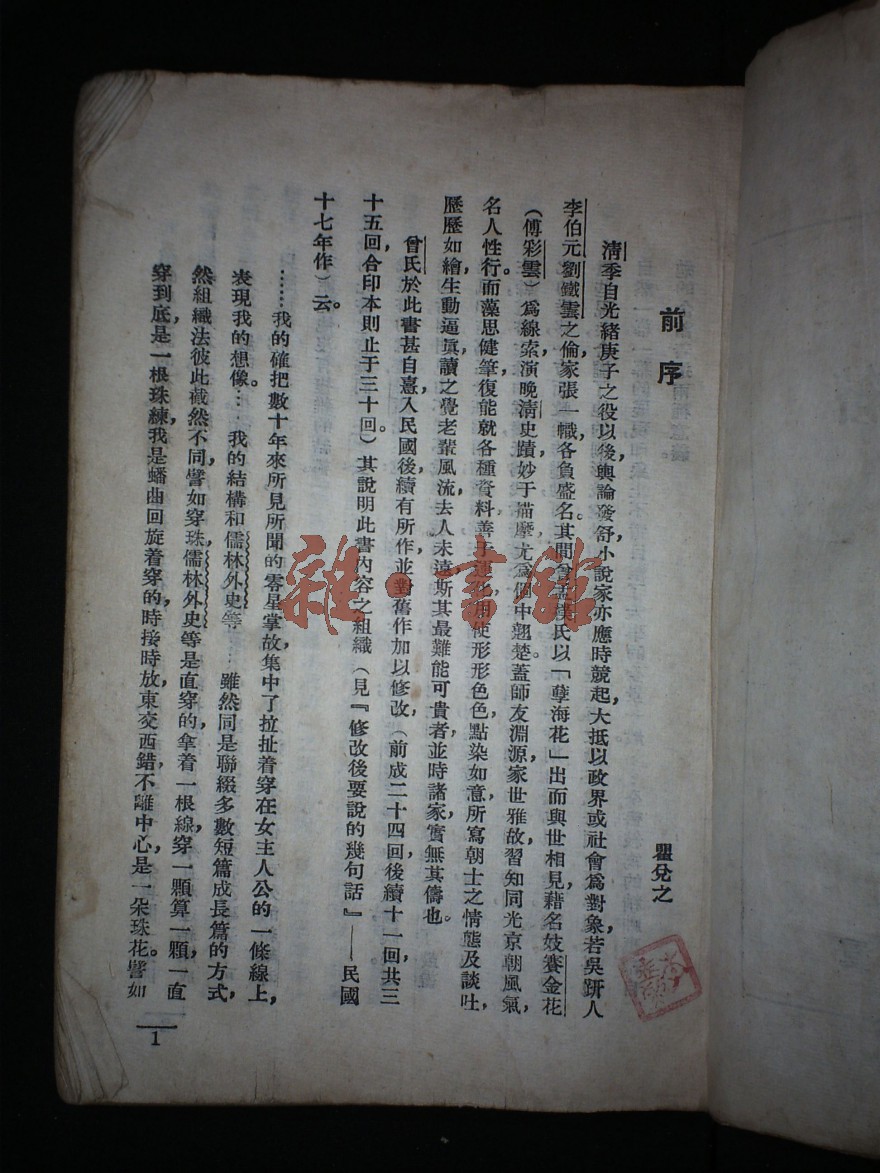 前序
瞿兌之
清季自光緒庚子之役以後，輿論發舒，小說家亦應時競起，大抵以政界或社會爲對象，若吳趼人
李伯元劉鐵雲之倫，家張一幟，各負盛名。其間曾孟樸氏以「孽海花」出而與世相見，藉名妓賽金花
（傅彩雲）爲線索，演晚清史蹟，妙于描摩，尤爲個中翹楚。蓋師友淵源，家世雅故，習知同光京朝風氣，
名人性行。而藻思健筆，復能就各種資料善于運化，用使形形色色，點染如意，所寫朝士之情態及談吐，
歷歷如繪，生動逼眞，讀之覺老輩風流，去人未遠，斯其最難能可貴者，並時諸家，實無其儔也。
曾氏於此書甚自憙，入民國後，續有所作，並對舊作加以修改，（前成二十四回，後續十一回，共三
十五回，合印本則止于三十回。）其說明此書內容之組織（見『修改後要說的幾句話』——民國
十七年作）云。
……我的確把數十年來所見所聞的零星掌故，集中了拉扯着穿在女主人公的一條線上，
表現我的想像。…我的結構和儒林外史等…雖然同是聯綴多數短篇成長篇的方式，
然組織法彼此截然不同，譬如穿珠，儒林外史等是直穿的，拿着一根線，穿一顆算一顆，一直
穿到底，是一根珠練，我是蟠曲回旋着穿的，時接時放，東交西錯，不離中心，是一朵珠花。譬如
1
雜·書館